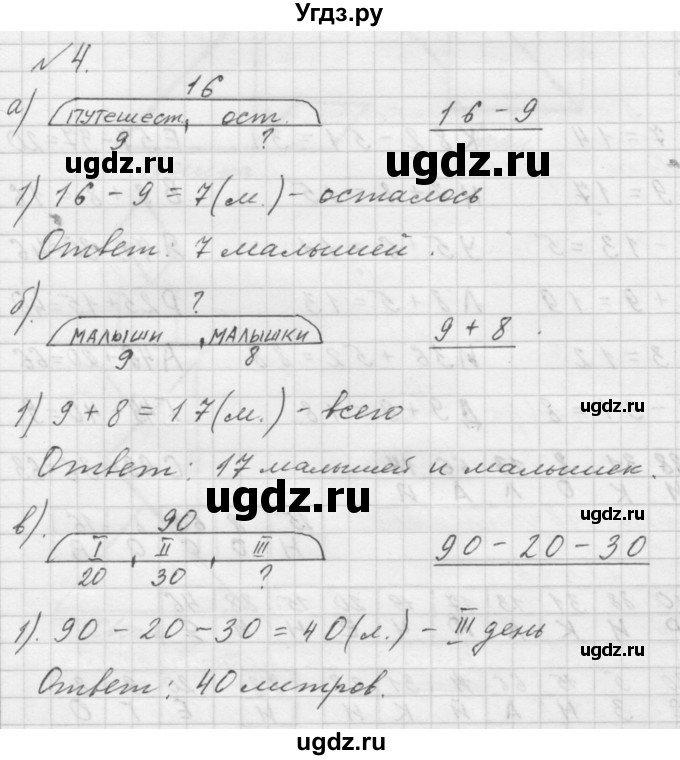 Угдз.ру
№ 4.
16
а) путешест. ост. 16 - 9
9 ?
ugdz.ru ugdz.ru
1) 16 - 9 = 7 (м.) - осталось
Ответ: 7 малышей.
?
б). малыши малышки 9 + 8.
9 8
ugdz.ru
1) 9 + 8 = 17 (м.) - всего
ugdz.ru
Ответ: 17 малышей и малышек.
ugdz.ru
90
в). I II III 90 - 20 - 30
20 30 ?
ugdz.ru
1). 90 - 20 - 30 = 40 (л.) - III день
ugdz.ru
Ответ: 40 литров.
ugdz.ru